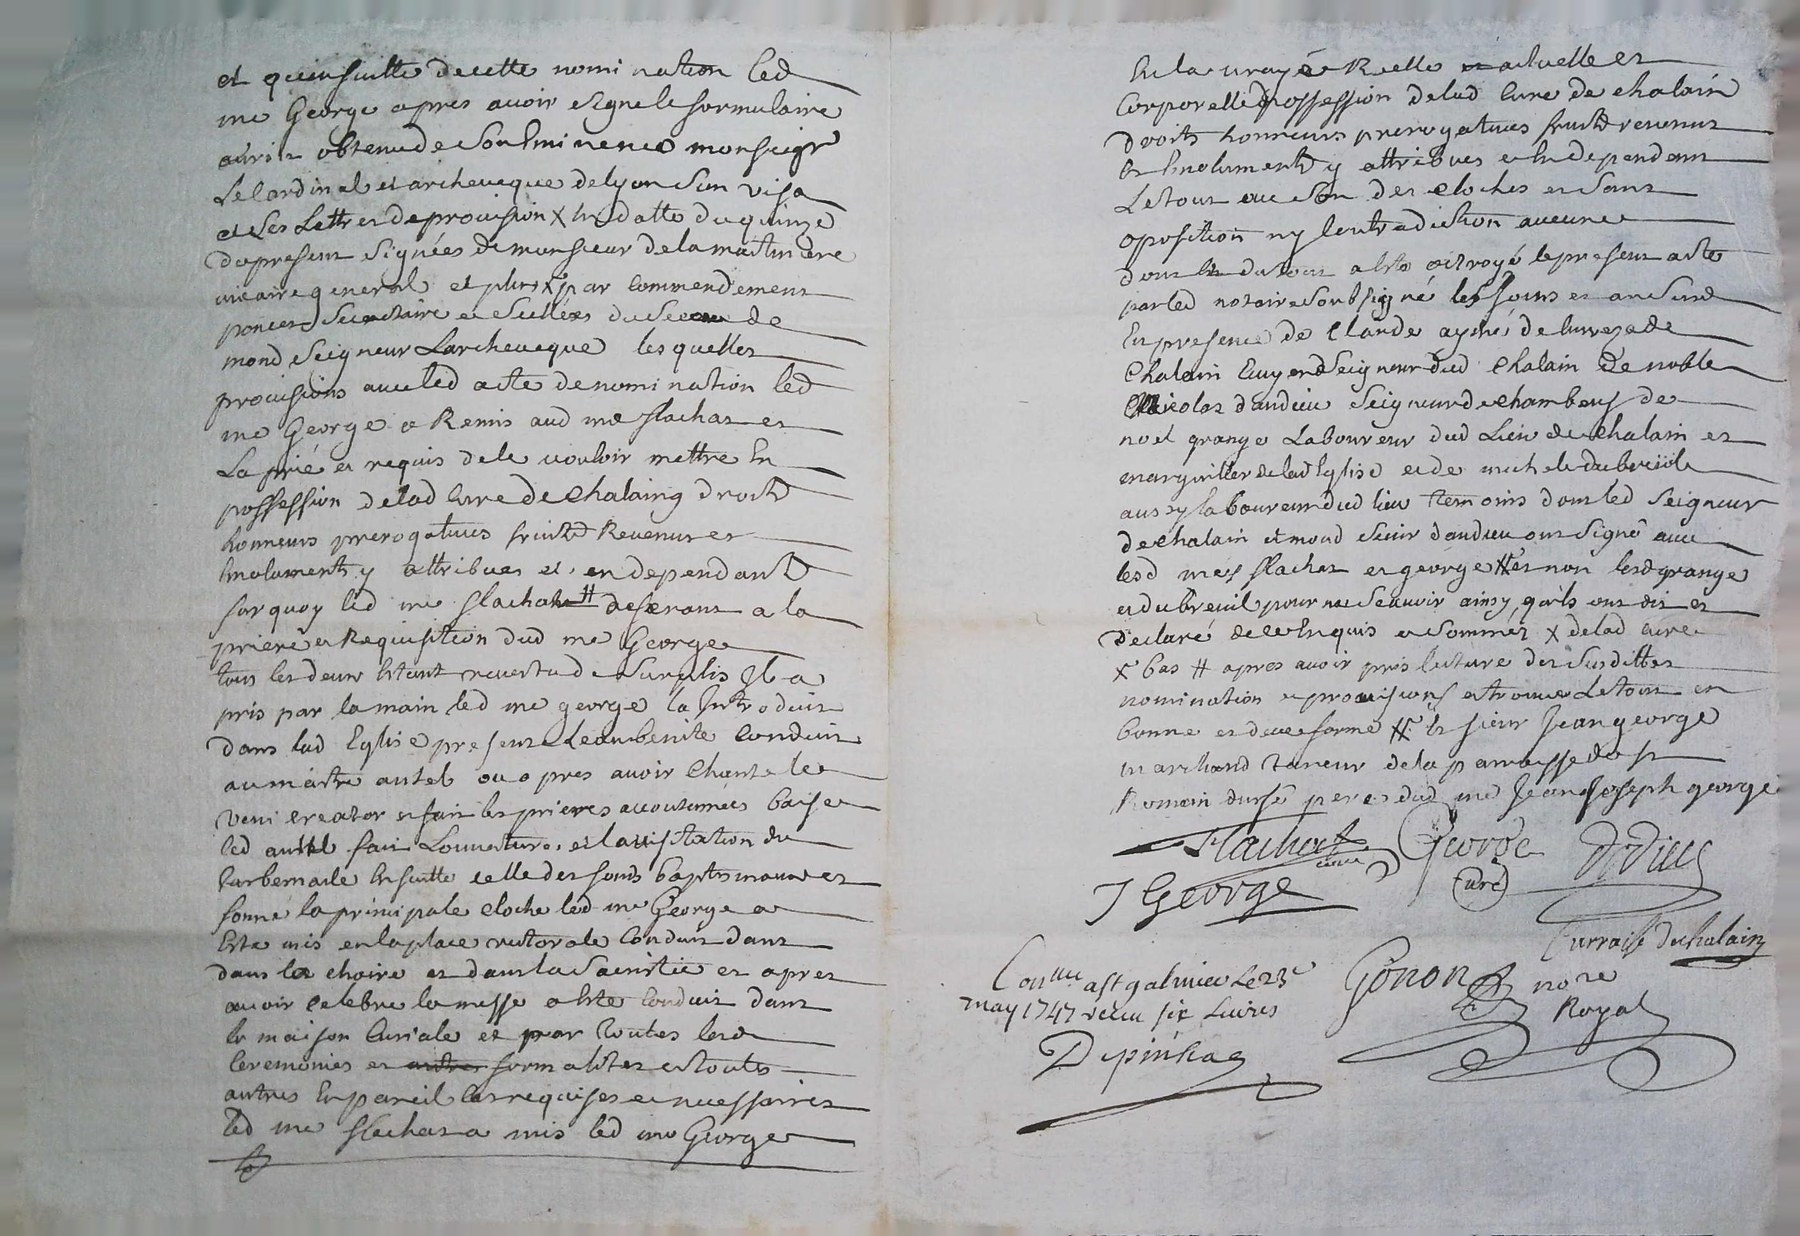 et qu'ensuitte de cette nomination led
me George apres avoir signe le formulaire
obtenu de son Eminence monseigr
Le Cardinal et archeveque de lyon son visa
et ses Lettres de provision X En datte du quinze
du present signées de monsieur de la
vicaire general et plus X par commendement
secretaire et scellées du sceau de
mond Seigneur Larcheveque lesquelles
provisions avec led acte de nomination led
me George a Remis aud me flachat et
La prié et requis de le vouloir mettre En
possession de lad Cure de Chalaing droits
honneurs prerogatives fruits Revenus et
Emoluments y attribues et en dependants
sur quoy led me flachat # deferant a la
priere et Requisition dud me George
tous les deux Etant revetu de Surplis Il a
pris par la main led me george la Introduit
dans lad Eglise presente Leau benite Conduit
au maitre autel ou apres avoir Chante le
veni creator et fait les prieres accoutumées baise
led autel fait Louverture et la visitation du
tarbernacle Ensuitte celle des fonds baptismaux et
sonné la principale cloche led me George a
Este mis en la place rectorale Conduit dans
dans la chaire et dans la Sacristie et apres
avoir celebre la messe a Este Conduit dans
la maison Curiale et par toutes les
Ceremonies et autres formalites et toutes
autres En pareil Cas requises et necessaires
led me flachat a mis led me George
En la vraye Reelle et actuelle et
Corporelle possession de lad Cure de chalain
droits honneurs prerogatives fruits revenus
Et Emoluments y attribues et En dependant
Le tout au Son des cloches et sans
oposition ny Contradiction aucune
dont du tout a Este octroyé le present acte
par led notaire soubsigné les Jours et an susd
En presence de Claude de
Chalain Ecuyer Seigneur dud Chalain de noble
Nicolas dandieu Seigneur de Chambeus de
noel grange Laboureur dud Lieu de Chalain et
marguillier de lad Eglise et de michel dubreüil
aussy laboureur dud lieu temoins dont led Seigneur
de Chalain et mond Sieur dandieu ont signé avec
lesd mes flachat et george # et non lesd grange
et dubreuil pour ne Scavoir ainsy quils ont dit et
Declaré de ce Enquis et Sommés X de lad cure
X bas # apres avoir pris lecture des Susdittes
nomination et provisions et trouve Le tout en
bonne et deue forme # Et sieur Jean george
marchand taneur de la paroisse de st
Romain dursé pere dud me Jean Joseph george
Flachat curé George curé
J George
Curraise de Chalain
Conlle a st galmier Le 23e
may 1747 recu six Livres
Gonon nore
Royal